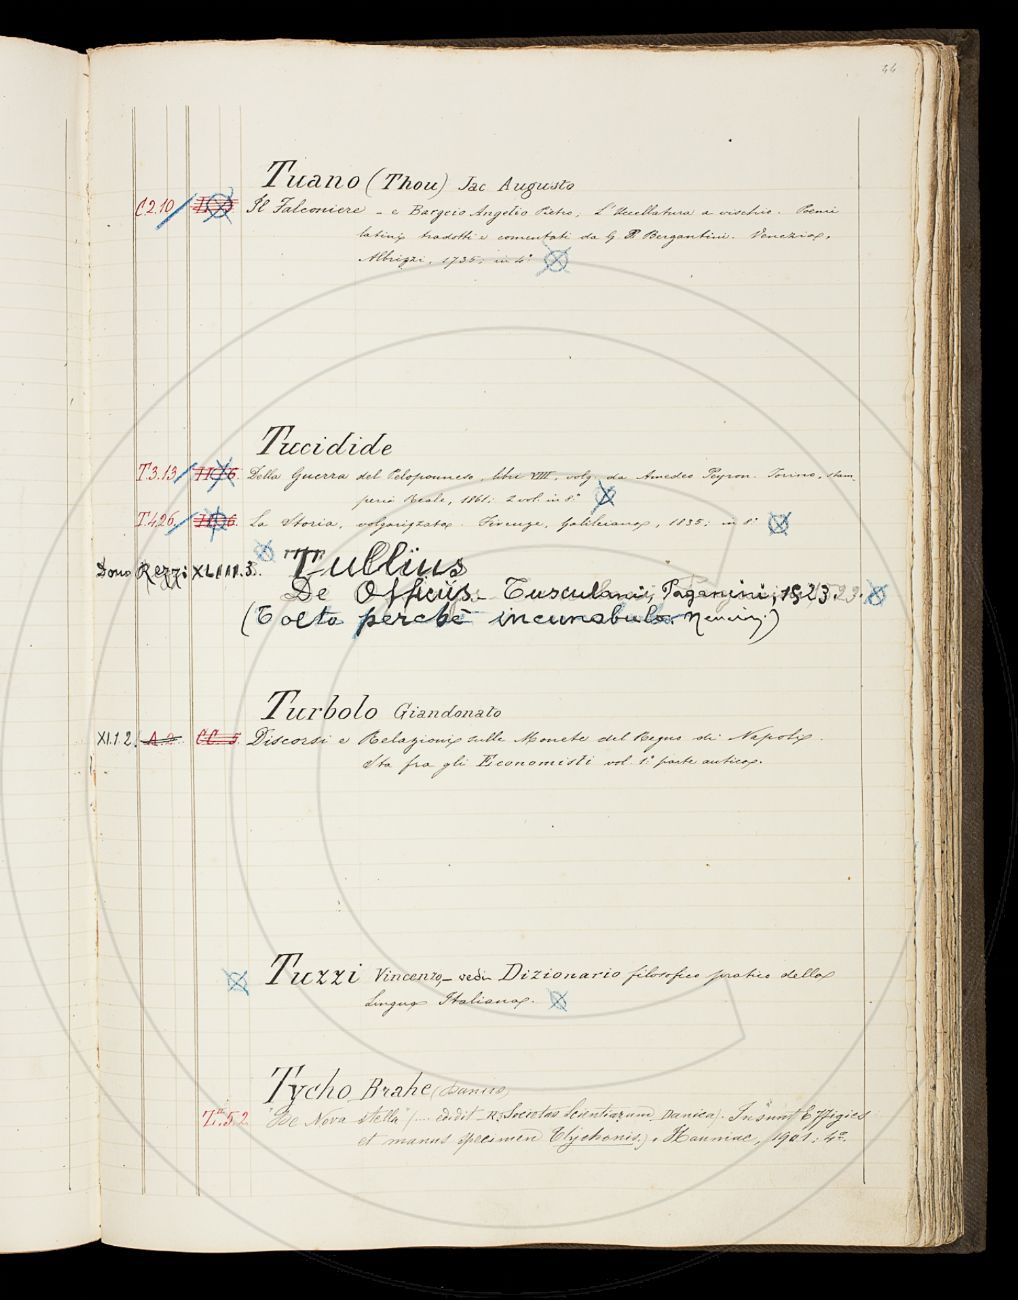 44
Tuano (Thou) Jac Augusto
C2.10 Il Falconiere - e Bargeio Angelio Pietro, L'Uccellatura a vischio. Poemi
latini tradotti e comentati da G. P. Bergantini. Venezia,
Albrizzi, 1735; in 4°
Tucidide
T3.13 II 6. Della Guerra del Peloponneso, libri VIII, volg. da Amedeo Peyron. Torino, stam
peria Reale, 1861; 2 vol. in 8°
T.4.26. La Storia, volgarizzata. Firenze, Galileiana, 1835; in 8°
Dono Rezzi XLIII.3. Tullius
De Officiis - Tusculani, Paganini, 1523.
(Tolto perchè incunabulo. )
Turbolo Giandonato
XI.1.2. A CC. 5 Discorsi e Relazioni sulle Monete del Regno di Napoli.
Sta fra gli Economisti vol. 1° parte antica.
Tuzzi Vincenzo - vedi Dizionario filosofico pratico della
Lingua Italiana.
Tycho Brahe (Danese)
Z.5.2. "De Nova stella" (... edidit R. Societas Scientiarum Danica). Insunt Effigies
et manus specimen Tychonis). Hauniae, 1901; 4°.